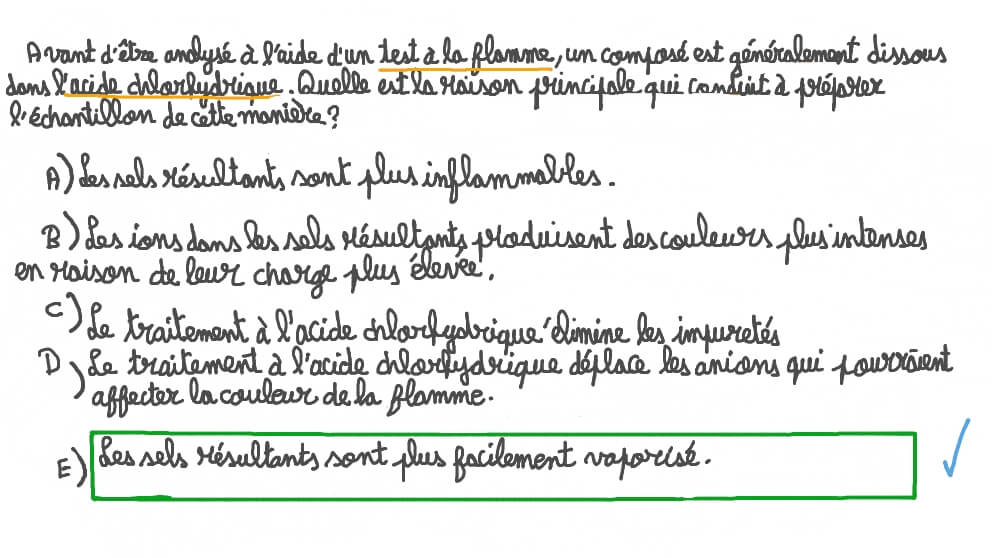 Avant d'être analysé à l'aide d'un test à la flamme, un composé est généralement dissous
dans l'acide chlorhydrique. Quelle est la raison principale qui conduit à préparer
l'échantillon de cette manière?
A) Les sels résultants sont plus inflammables.
B) Les ions dans les sels résultants produisent des couleurs plus intenses
en raison de leur charge plus élevée.
C) Le traitement à l'acide chlorhydrique élimine les impuretés
D) Le traitement à l'acide chlorhydrique déplace les anions qui pourraient
affecter la couleur de la flamme.
E) Les sels résultants sont plus facilement vaporisé.